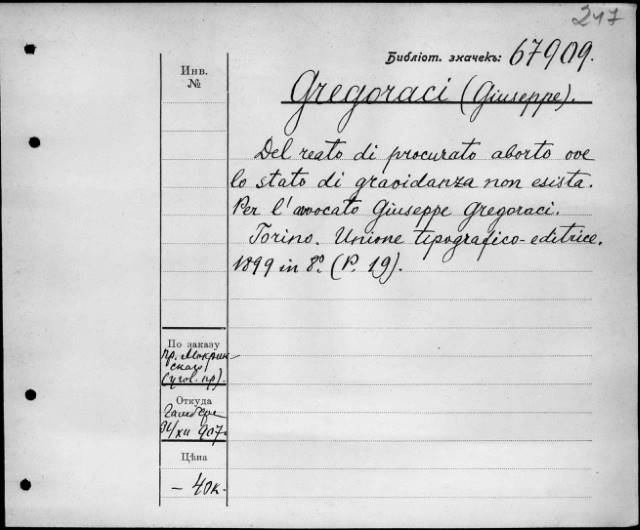 247
Библіот. значекъ: 67909.
Инв.
№
Gregoraci (Giuseppe).
Del reato di procurato aborto ove
lo stato di gravidanza non esista.
Per l'avvocato Giuseppe Gregoraci.
Torino. Unione tipografico-editrice.
1899 in 8º. (P. 19).
По заказу
пр. Мокрин-
скаго
(угол. пр).
Откуда
/XII 907.
Цѣна
— 40к.